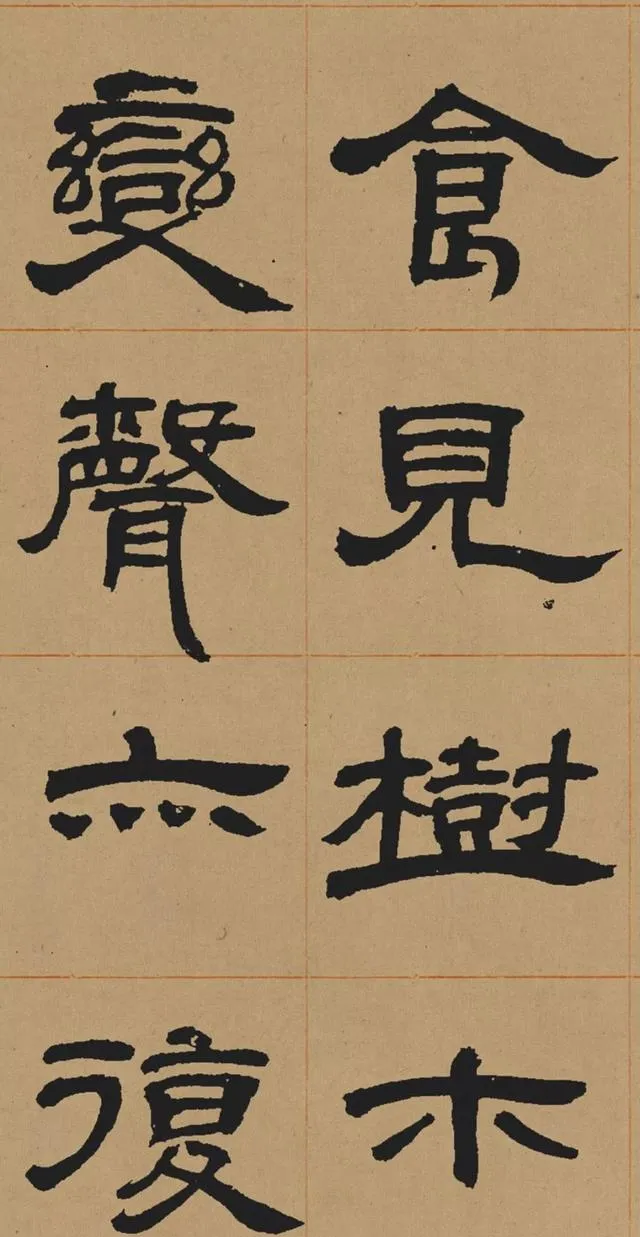 食見樹木
變聲亦復